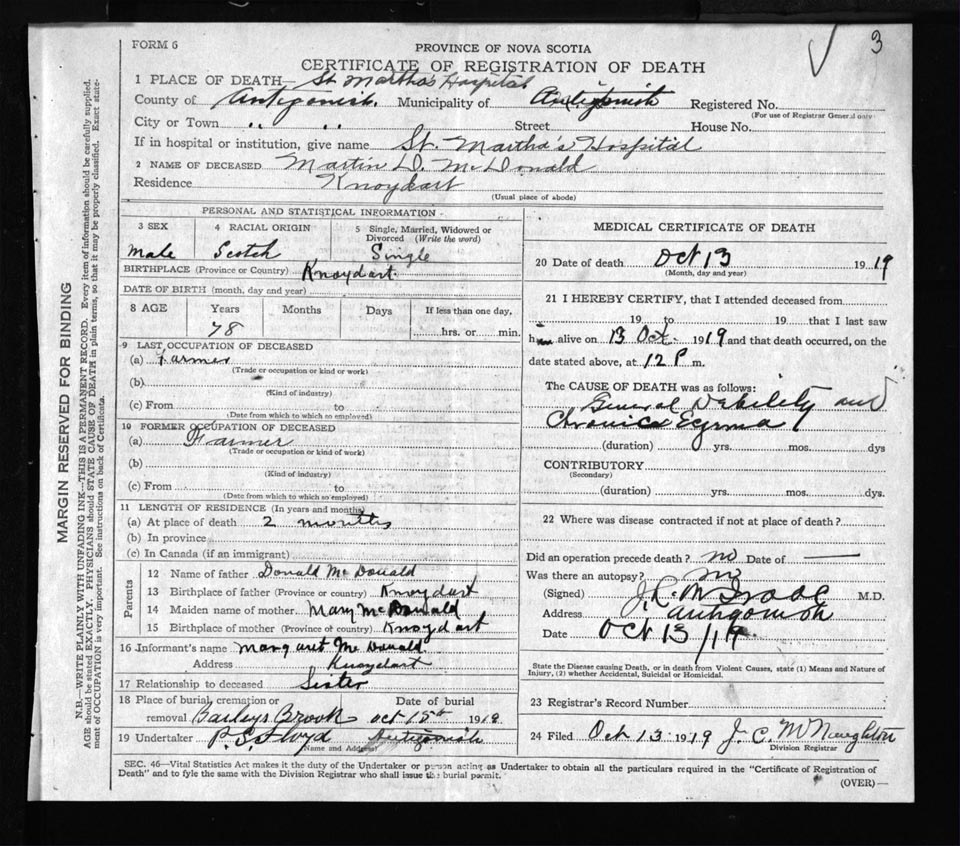 3
FORM 6
PROVINCE OF NOVA SCOTIA
CERTIFICATE OF REGISTRATION OF DEATH
1 PLACE OF DEATH— St. Martha's Hospital
County of Antigonish. Municipality of Antigonish Registered No.
(For use of Registrar General only)
City or Town " " Street House No.
If in hospital or institution, give name St. Martha's Hospital
2 NAME OF DECEASED Martin D. McDonald
Residence Knoydart
(Usual place of abode)
PERSONAL AND STATISTICAL INFORMATION
3 SEX 4 RACIAL ORIGIN 5 Single, Married, Widowed or Divorced (Write the word)
Male Scotch Single
BIRTHPLACE (Province or Country) Knoydart.
DATE OF BIRTH (month, day and year)
8 AGE Years Months Days If less than one day,
78 hrs. or min.
9 LAST OCCUPATION OF DECEASED
(a) Farmer
(Trade or occupation or kind or work)
(b)
(Kind of industry)
(c) From to
(Date from which to which so employed)
10 FORMER OCCUPATION OF DECEASED
(a) Farmer
(Trade or occupation or kind of work)
(b)
(Kind of industry)
(c) From to
(Date from which to which so employed)
11 LENGTH OF RESIDENCE (In years and months)
(a) At place of death 2 months
(b) In province
(c) In Canada (if an immigrant)
Parents
12 Name of father Donald McDonald
13 Birthplace of father (Province or country) Knoydart
14 Maiden name of mother Mary McDonald
15 Birthplace of mother (Province or country) Knoydart
16 Informant's name Margaret McDonald
Address Knoydart
17 Relationship to deceased Sister
18 Place of burial, cremation or Date of burial
removal Baileys Brook Oct 15th 1919
19 Undertaker Antigonish
(Name and Address)
MEDICAL CERTIFICATE OF DEATH
20 Date of death Oct 13 1919
(Month, day and year)
21 I HEREBY CERTIFY, that I attended deceased from
19 to 19 that I last saw
him alive on 13 Oct. 1919 and that death occurred, on the
date stated above, at 12 P m.
The CAUSE OF DEATH was as follows:
General Debility and
Chronic
(duration) yrs. mos. dys
CONTRIBUTORY
(Secondary)
(duration) yrs. mos. dys.
22 Where was disease contracted if not at place of death?
Did an operation precede death? no Date of —
Was there an autopsy? no
(Signed) M.D.
Address Antigonish
Date Oct 13/19
State the Disease causing Death, or in death from Violent Causes, state (1) Means and Nature of
Injury, (2) whether Accidental, Suicidal or Homicidal.
23 Registrar's Record Number
24 Filed Oct 13 1919 J. C. McNaughton
Division Registrar
SEC. 46—Vital Statistics Act makes it the duty of the Undertaker or person acting as Undertaker to obtain all the particulars required in the "Certificate of Registration of
Death" and to fyle the same with the Division Registrar who shall issue the burial permit.
(OVER)—
MARGIN RESERVED FOR BINDING
N.B.—WRITE PLAINLY WITH UNFADING INK—THIS IS A PERMANENT RECORD. Every item of information should be carefully supplied.
AGE should be stated EXACTLY. PHYSICIANS should STATE CAUSE OF DEATH in plain terms, so that it may be properly classified. Exact state-
ment of OCCUPATION is very important. See instructions on back of Certificate.